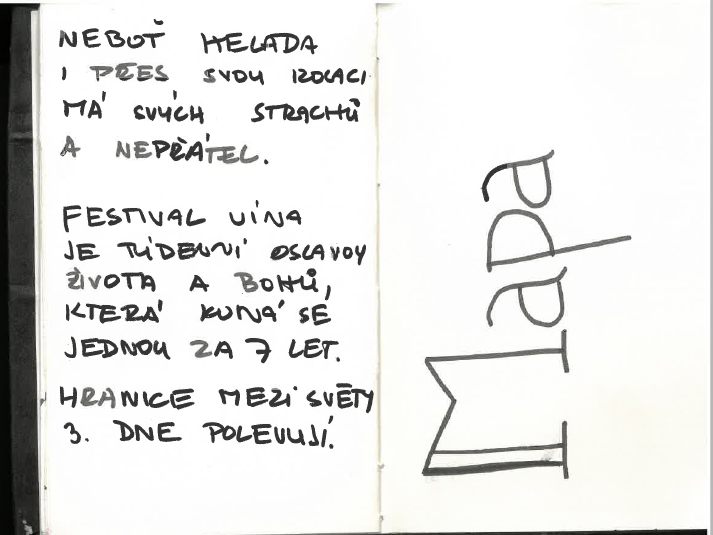 NEBOŤ HELADA
I PŘES SVOU IZOLACI
MÁ SVÝCH STRACHŮ
A NEPŘÁTEL.
FESTIVAL VÍNA
JE TŘÍDENNÍ OSLAVOU
ŽIVOTA A BOHŮ,
KTERÁ KONÁ SE
JEDNOU ZA 7 LET.
HRANICE MEZI SVĚTY
3. DNE POLEVUJÍ.
Mapa